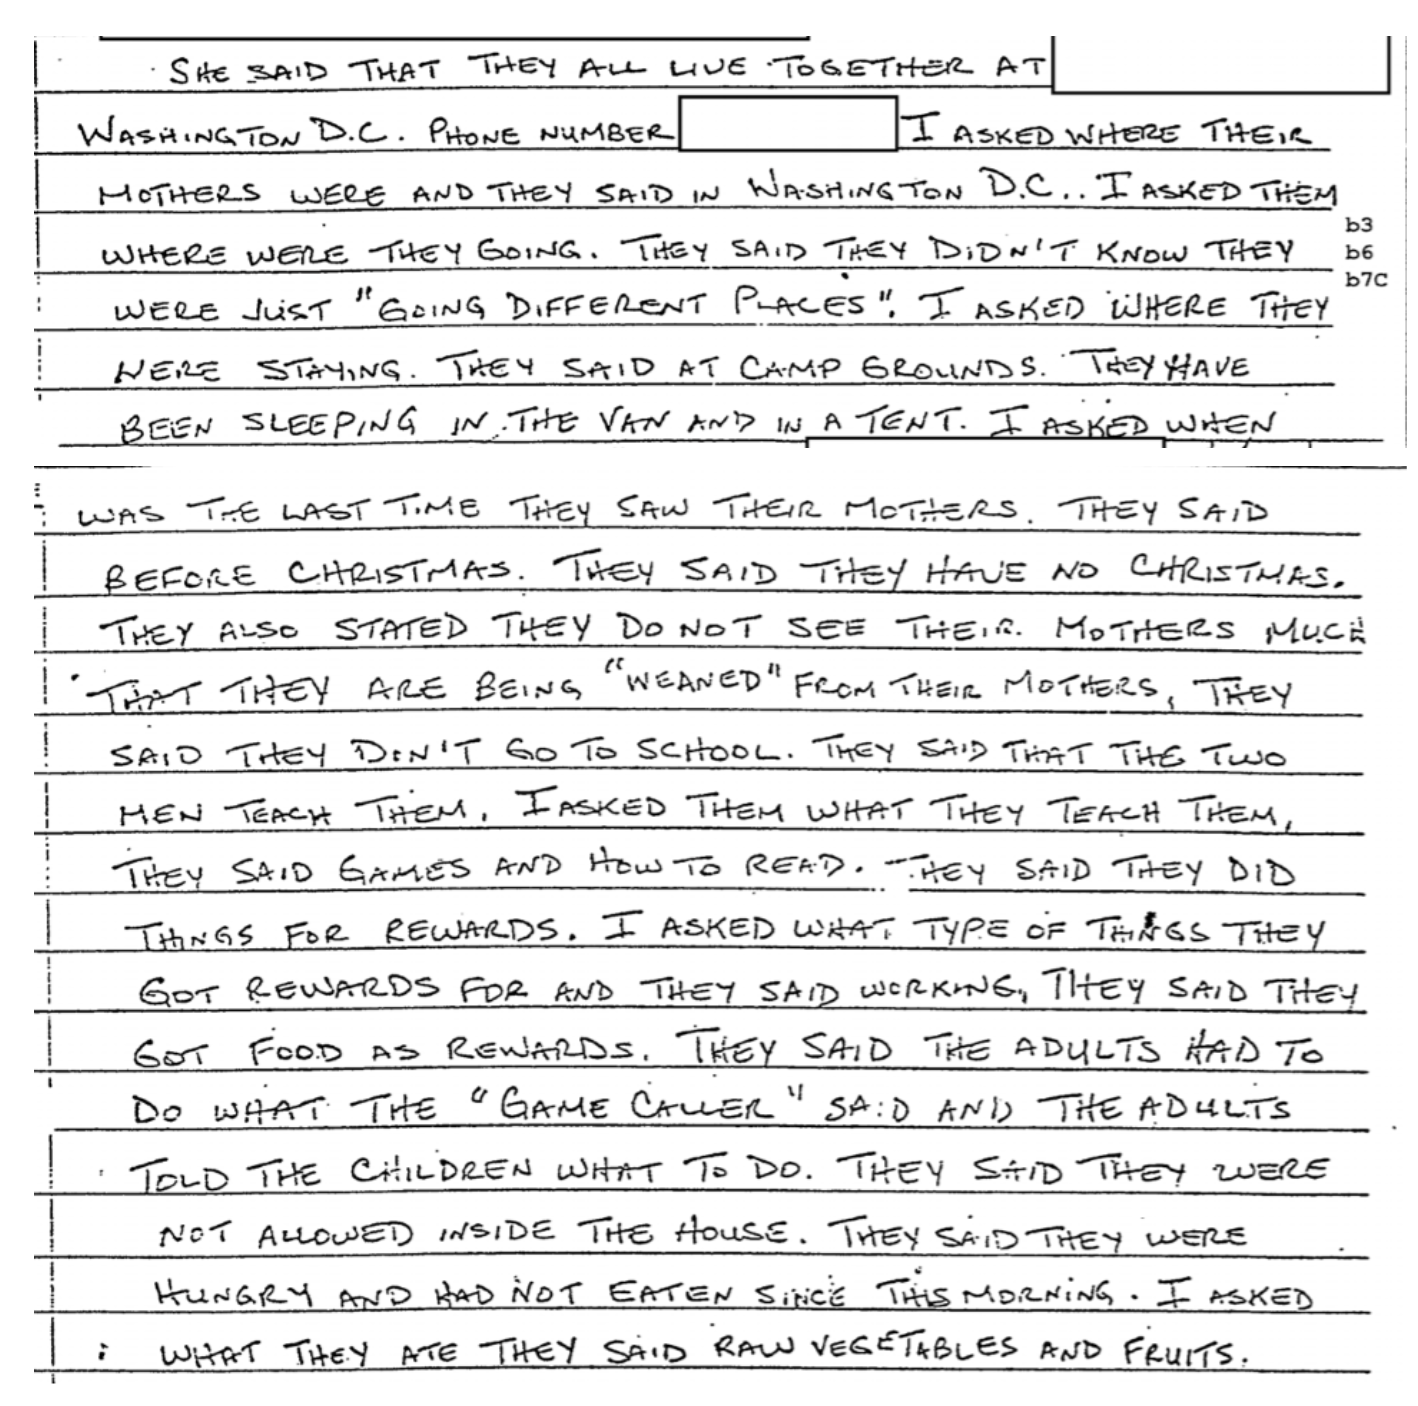 SHE SAID THAT THEY ALL LIVE TOGETHER AT
WASHINGTON D.C. PHONE NUMBER I ASKED WHERE THEIR
MOTHERS WERE AND THEY SAID IN WASHINGTON D.C.. I ASKED THEM
b3
WHERE WERE THEY GOING. THEY SAID THEY DIDN'T KNOW THEY
b6
b7C
WERE JUST "GOING DIFFERENT PLACES". I ASKED WHERE THEY
WERE STAYING. THEY SAID AT CAMP GROUNDS. THEY HAVE
BEEN SLEEPING IN THE VAN AND IN A TENT. I ASKED WHEN
WAS THE LAST TIME THEY SAW THEIR MOTHERS. THEY SAID
BEFORE CHRISTMAS. THEY SAID THEY HAVE NO CHRISTMAS.
THEY ALSO STATED THEY DO NOT SEE THEIR MOTHERS MUCH
THAT THEY ARE BEING "WEANED" FROM THEIR MOTHERS, THEY
SAID THEY DON'T GO TO SCHOOL. THEY SAID THAT THE TWO
MEN TEACH THEM. I ASKED THEM WHAT THEY TEACH THEM,
THEY SAID GAMES AND HOW TO READ. THEY SAID THEY DID
THINGS FOR REWARDS. I ASKED WHAT TYPE OF THINGS THEY
GOT REWARDS FOR AND THEY SAID WORKING, THEY SAID THEY
GOT FOOD AS REWARDS. THEY SAID THE ADULTS HAD TO
DO WHAT THE "GAME CALLER" SAID AND THE ADULTS
TOLD THE CHILDREN WHAT TO DO. THEY SAID THEY WERE
NOT ALLOWED INSIDE THE HOUSE. THEY SAID THEY WERE
HUNGRY AND HAD NOT EATEN SINCE THIS MORNING. I ASKED
WHAT THEY ATE THEY SAID RAW VEGETABLES AND FRUITS.